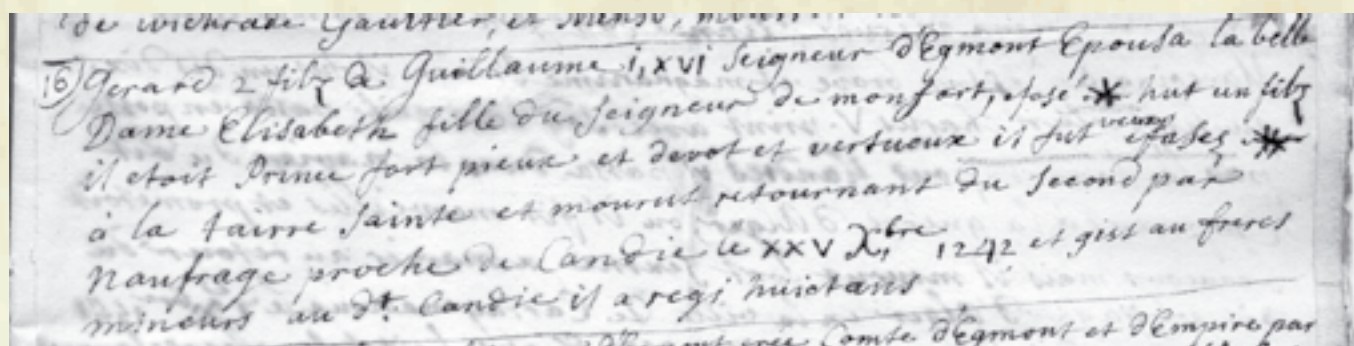 de wichrade Gaultier, et
16 Gerard 2 filz de Guillaume i, xvi Seigneur d'Egmont Epousa la belle
Dame Elisabeth fille du Seigneur de monfort, hut un filz
il etoit Prince fort pieux et devot et vertuoux il fut
à la tairre Sainte et mourut retournant du Second par
Naufrage proche de Candie le XXV X.bre 1242 et gist au freres
mineurs au dt. Candie il a regi huictans
Comte d'Egmont et d'Empire par